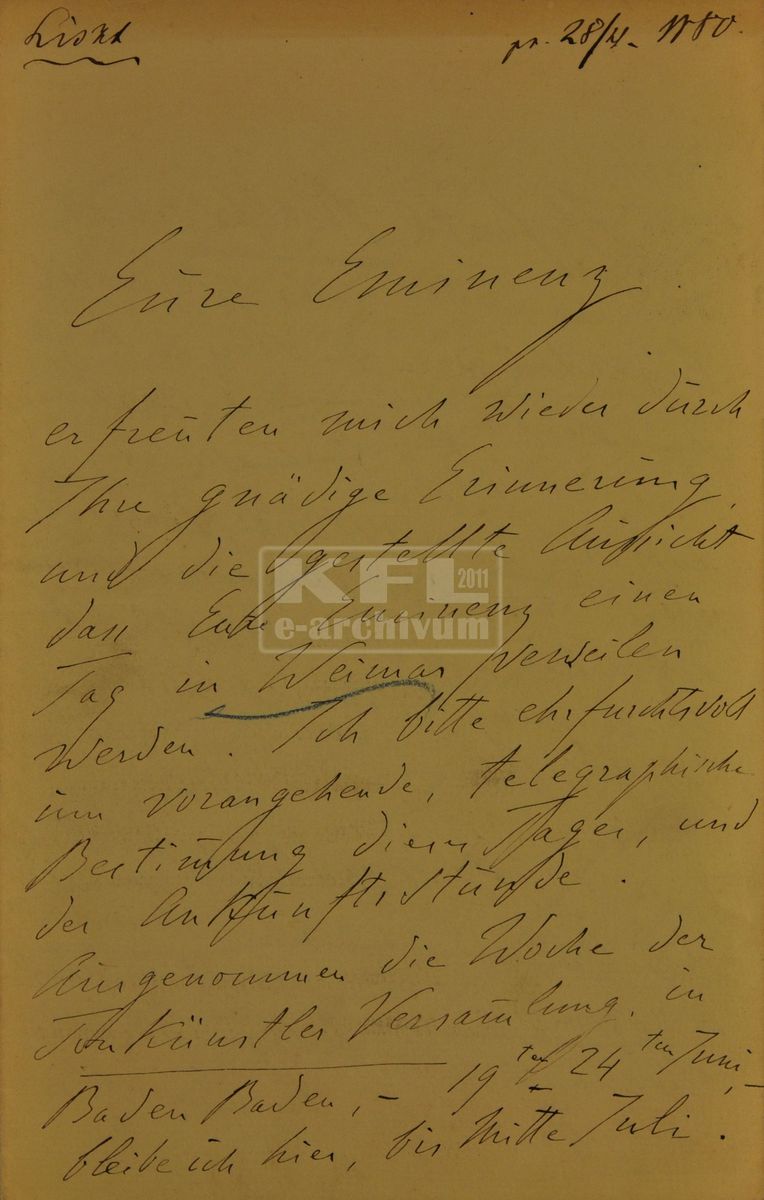 Liszt
pr. 28/4. 1880.
Eure Eminenz
erfreuten mich wieder durch
Ihre gnädige Erinnerung,
und die gestellte Aussicht
KFL 2011
e-archivum
dass Eure Eminenz einen
Tag in Weimar verweilen
werden. Ich bitte ehrfurchtsvoll
um vorangehende, telegraphische
Bestim̄ung dieses Tages, und
der Ankunftsstunde.
Ausgenommen die Woche der
Tonkünstler Versam̄lung, in
Baden Baden,– 19ten 24ten Juni,–
bleibe ich hier, bis Mitte Juli.